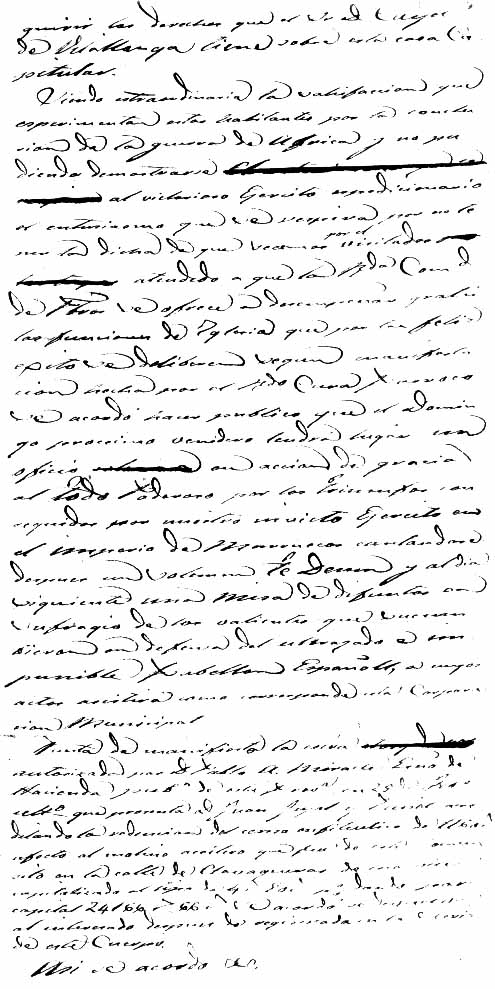 quirir los derechos que el Sr. de
de Vilallonga tiene sobre esta casa Ca
pitular.
Siendo extraordinaria la satisfaccion que
experimentan estos habitantes por la conclu
sion de la guerra de Africa y no pu
diendo demostrarse
al victorioso Ejercito espedicionario
el entusiasmo que se respira por no te
ner la dicha de que veamos por el visitados
atendido a que la Rda Comd
de Pbros se ofrece a desempeñar gratis
las funciones de Yglesia que por tan feliz
exito se deliberen segun manifesta
cion hecha por el Rdo Cura Parroco
se acordó hacer publico que el Domin
go procsimo venidero tendra lugar un
oficio en accion de gracias
al Todo Poderoso por los triumfos con
seguidos por nuestro invicto Ejercito en
el imperio de Marruecos cantandose
despues un solemne Te Deum y al dia
siguiente una Misa de difuntos en
sufragio de los valientes que sucum
bieron en defensa del ultrajado e im
punible Pabellon Español, a cuyos
actos asistira como corresponde esta Corpora
cion Municipal
Puesta de manifiesto la copia
autorizada por D. Pablo A. Miracle Esno de
Hacienda
que presenta Juan
la redencion del censo enfiteutico de
afecto al molino aceitero que
sito en la calle de Claraqueras
capitalizado al tipo de
capital 24166 66 se acordó
al interesado despues de registrada en la
de este Cuerpo.
Asi se acordo